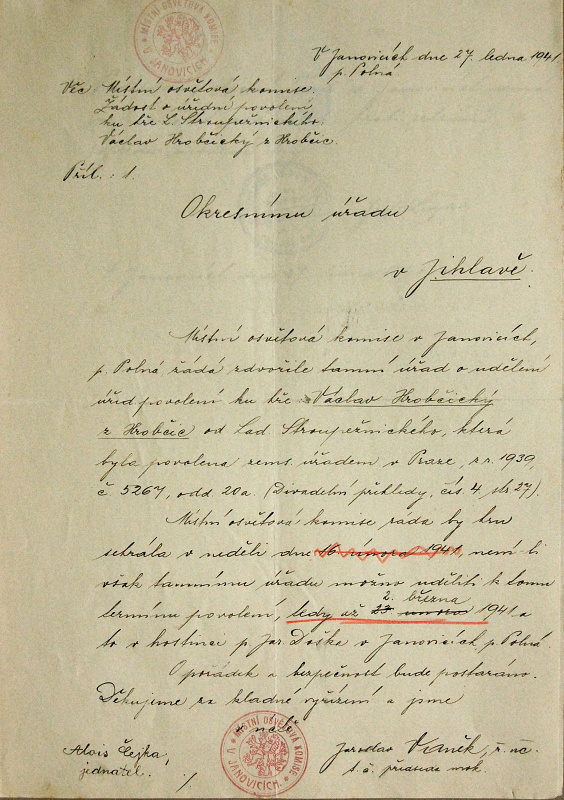 MÍSTNÍ OSVĚTOVÁ KOMISE V JANOVICÍCH
V Janovicích dne 27. ledna 1941
p. Polná
Věc Místní osvětová komise.
Žádost o úřední povolení
ku hře L. Stroupežnického
Václav Hrobčický z Hrobčic.
Příl. : 1
Okresnímu úřadu
v Jihlavě.
Místní osvětová komise v Janovicích,
p. Polná žádá zdvořile tamní úřad o udělení
úřed. povolení ku hře Václav Hrobčický
z Hrobčic od Lad. Stroupežnického, která
byla povolena zems. úřadem v Praze, z r. 1939,
č 5267, odd. 20a. (Divadelní přehledy, čís. 4, str 27).
Místní osvětová komise ráda by hru
sehrála v neděli dne 16 února 1941, není-li
však tamnímu úřadu možno uděliti k tomu
2. března
termínu povolení, tedy až 23 února 1941 a
to v hostinci p. Jar. Doška v Janovicích, p. Polná.
O pořádek a bezpečnost bude postaráno.
Děkujeme za kladné vyřízení a jsme
Alois Čejka,
jednatel.
MÍSTNÍ OSVĚTOVÁ KOMISE V JANOVICÍCH
Jaroslav Vaněk, ř. uč.
t. č. předseda mok.